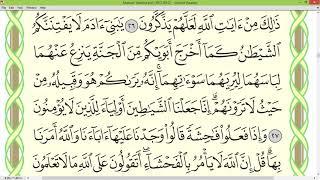 ذَٰلِكَ مِنْ ءَايَٰتِ ٱللَّهِ لَعَلَّهُمْ يَذَّكَّرُونَ ٢٦ يَٰبَنِىٓ ءَادَمَ لَا يَفْتِنَنَّكُمُ
ٱلشَّيْطَٰنُ كَمَآ أَخْرَجَ أَبَوَيْكُم مِّنَ ٱلْجَنَّةِ يَنزِعُ عَنْهُمَا
لِبَاسَهُمَا لِيُرِيَهُمَا سَوْءَٰتِهِمَآ ۗ إِنَّهُۥ يَرَىٰكُمْ هُوَ وَقَبِيلُهُۥ مِنْ
حَيْثُ لَا تَرَوْنَهُمْ ۗ إِنَّا جَعَلْنَا ٱلشَّيَٰطِينَ أَوْلِيَآءَ لِلَّذِينَ لَا يُؤْمِنُونَ
٢٧ وَإِذَا فَعَلُوا۟ فَٰحِشَةً قَالُوا۟ وَجَدْنَا عَلَيْهَآ ءَابَآءَنَا وَٱللَّهُ أَمَرَنَا
بِهَا ۗ قُلْ إِنَّ ٱللَّهَ لَا يَأْمُرُ بِٱلْفَحْشَآءِ ۖ أَتَقُولُونَ عَلَى ٱللَّهِ مَا لَا تَعْلَمُونَ